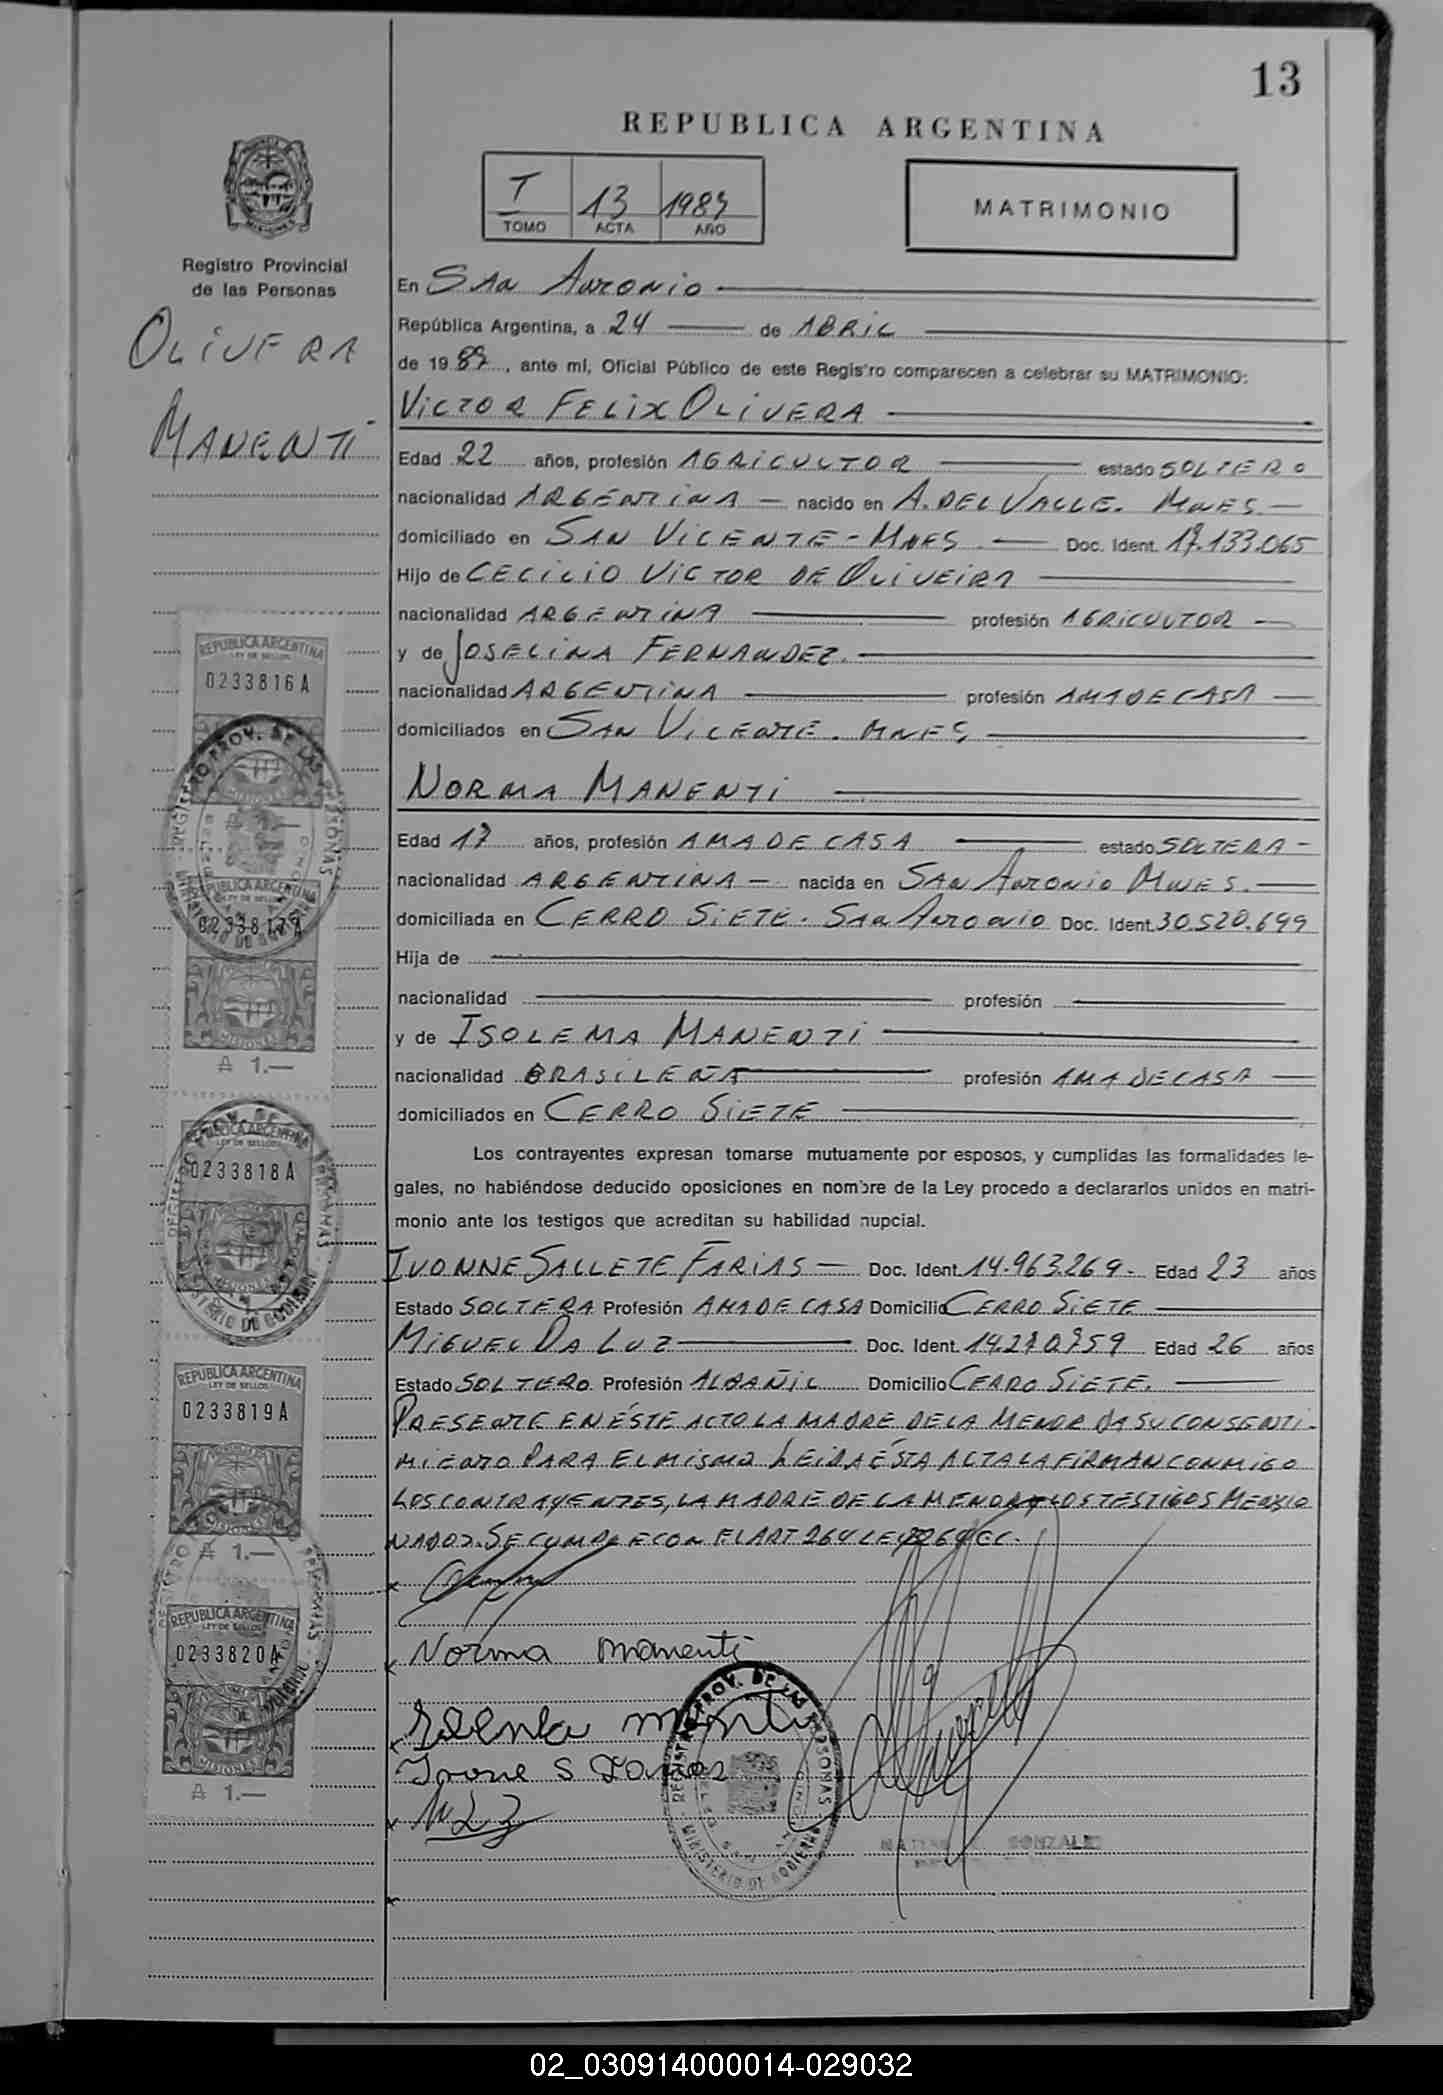 13
REPUBLICA ARGENTINA
T 13 1987
TOMO ACTA AÑO
MATRIMONIO
Registro Provincial
de las Personas
OLIVERA
MANENTI
En SAN ANTONIO
República Argentina, a 24 de ABRIL
de 1987, ante mí, Oficial Público de este Registro comparecen a celebrar su MATRIMONIO:
VICTOR FELIX OLIVERA
Edad 22 años, profesión AGRICULTOR estado SOLTERO
nacionalidad ARGENTINA — nacido en A. DEL VALLE. MNES. —
domiciliado en SAN VICENTE - MNES. — Doc. Ident. 17.133.065
Hijo de CECILIO VICTOR DE OLIVEIRA
nacionalidad ARGENTINA profesión AGRICULTOR —
y de JOSELINA FERNANDEZ.
nacionalidad ARGENTINA profesión AMA DE CASA —
domiciliados en SAN VICENTE. MNES,
NORMA MANENTI
Edad 17 años, profesión AMA DE CASA estado SOLTERA -
nacionalidad ARGENTINA — nacida en SAN ANTONIO MNES. —
domiciliada en CERRO SIETE. SAN ANTONIO Doc. Ident. 30.520.699
Hija de
nacionalidad profesión
y de ISOLEMA MANENTI
nacionalidad BRASILEÑA profesión AMA DE CASA —
domiciliados en CERRO SIETE
Los contrayentes expresan tomarse mutuamente por esposos, y cumplidas las formalidades le-
gales, no habiéndose deducido oposiciones en nombre de la Ley procedo a declararlos unidos en matri-
monio ante los testigos que acreditan su habilidad nupcial.
IVONNE SALLETE FARIAS — Doc. Ident. 14.963.269 - Edad 23 años
Estado SOLTERA Profesión AMA DE CASA Domicilio CERRO SIETE
MIGUEL DA LUZ Doc. Ident. 14.270.759 Edad 26 años
Estado SOLTERO. Profesión ALBAÑIL Domicilio CERRO SIETE.
PRESENTE EN ÉSTE ACTO LA MADRE DE LA MENOR DA SU CONSENTI-
MIENTO PARA EL MISMO LEIDA ÉSTA ACTA LA FIRMAN CONMIGO
LOS CONTRAYENTES, LA MADRE DE LA MENOR Y LOS TESTIGOS MENCIO
NADOS. SE CUMPLE CON EL ART 264 LEY
Norma Manenti
Ivone S Farias
REPUBLICA ARGENTINA
LEY DE SELLOS
0233816A
MISIONES
REPUBLICA ARGENTINA
LEY DE SELLOS
0233817A
MISIONES
A 1.—
REPUBLICA ARGENTINA
LEY DE SELLOS
0233818A
REPUBLICA ARGENTINA
LEY DE SELLOS
0233819A
A 1.—
REPUBLICA ARGENTINA
LEY DE SELLOS
0233820A
MISIONES
A 1.—
REGISTRO PROV. DE LAS PERSONAS
MINISTERIO DE GOBIERNO
GONZALEZ
02_030914000014-029032